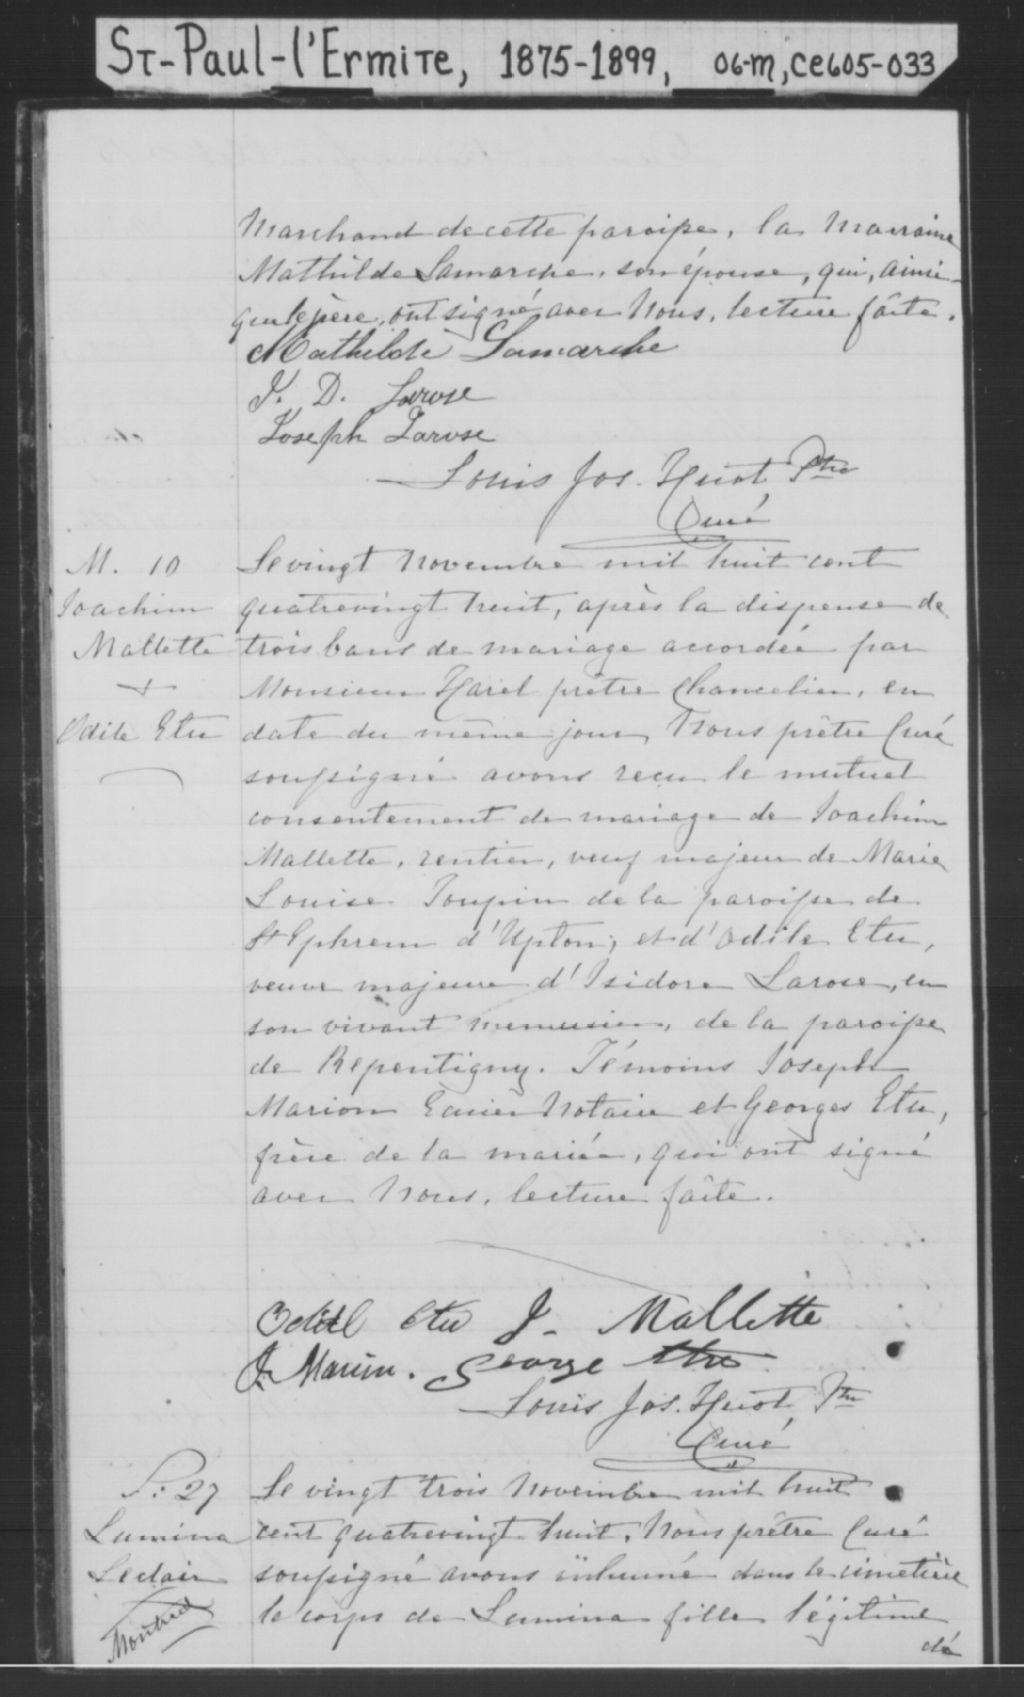 St-Paul-l'Ermite, 1875-1899, 06-M, CE605-033
Marchand de cette paroisse, la Marraine
Mathilde Lamarche, son épouse, qui, ainsi
que le père, ont signé avec Nous, lecture faite.
Mathilde Lamarche
J. D. Larose
Joseph Larose
Louis Jos. Huot Ptre
Curé
M. 10
Joachim
Mallette
+
Odile Etu
Le vingt Novembre mil huit cent
quatrevingt huit, après la dispense de
trois bans de mariage accordée par
Monsieur Harel prêtre Chancelier, en
date du même jour, Nous prêtre Curé
soussigné avons reçu le mutuel
consentement de mariage de Joachim
Mallette, rentier, veuf majeur de Marie
Louise Toupin de la paroisse de
St Ephrem d'Upton; et d'Odile Etu,
veuve majeure d'Isidore Larose, en
son vivant menuisier, de la paroisse
de Repentigny. Témoins Joseph
Marion Ecuier Notaire et Georges Etu,
frère de la mariée, qui ont signé
avec Nous, lecture faite.
Odile Etu J. Mallette
J. Marion. George Etu
Louis Jos. Huot, Ptre
Curé
S. 27
Lumina
Leclair
Montréal
Le vingt trois Novembre mil huit
cent quatrevingt huit, Nous prêtre Curé
soussigné avons inhumé dans le cimetière
le corps de Lumina fille légitime
de